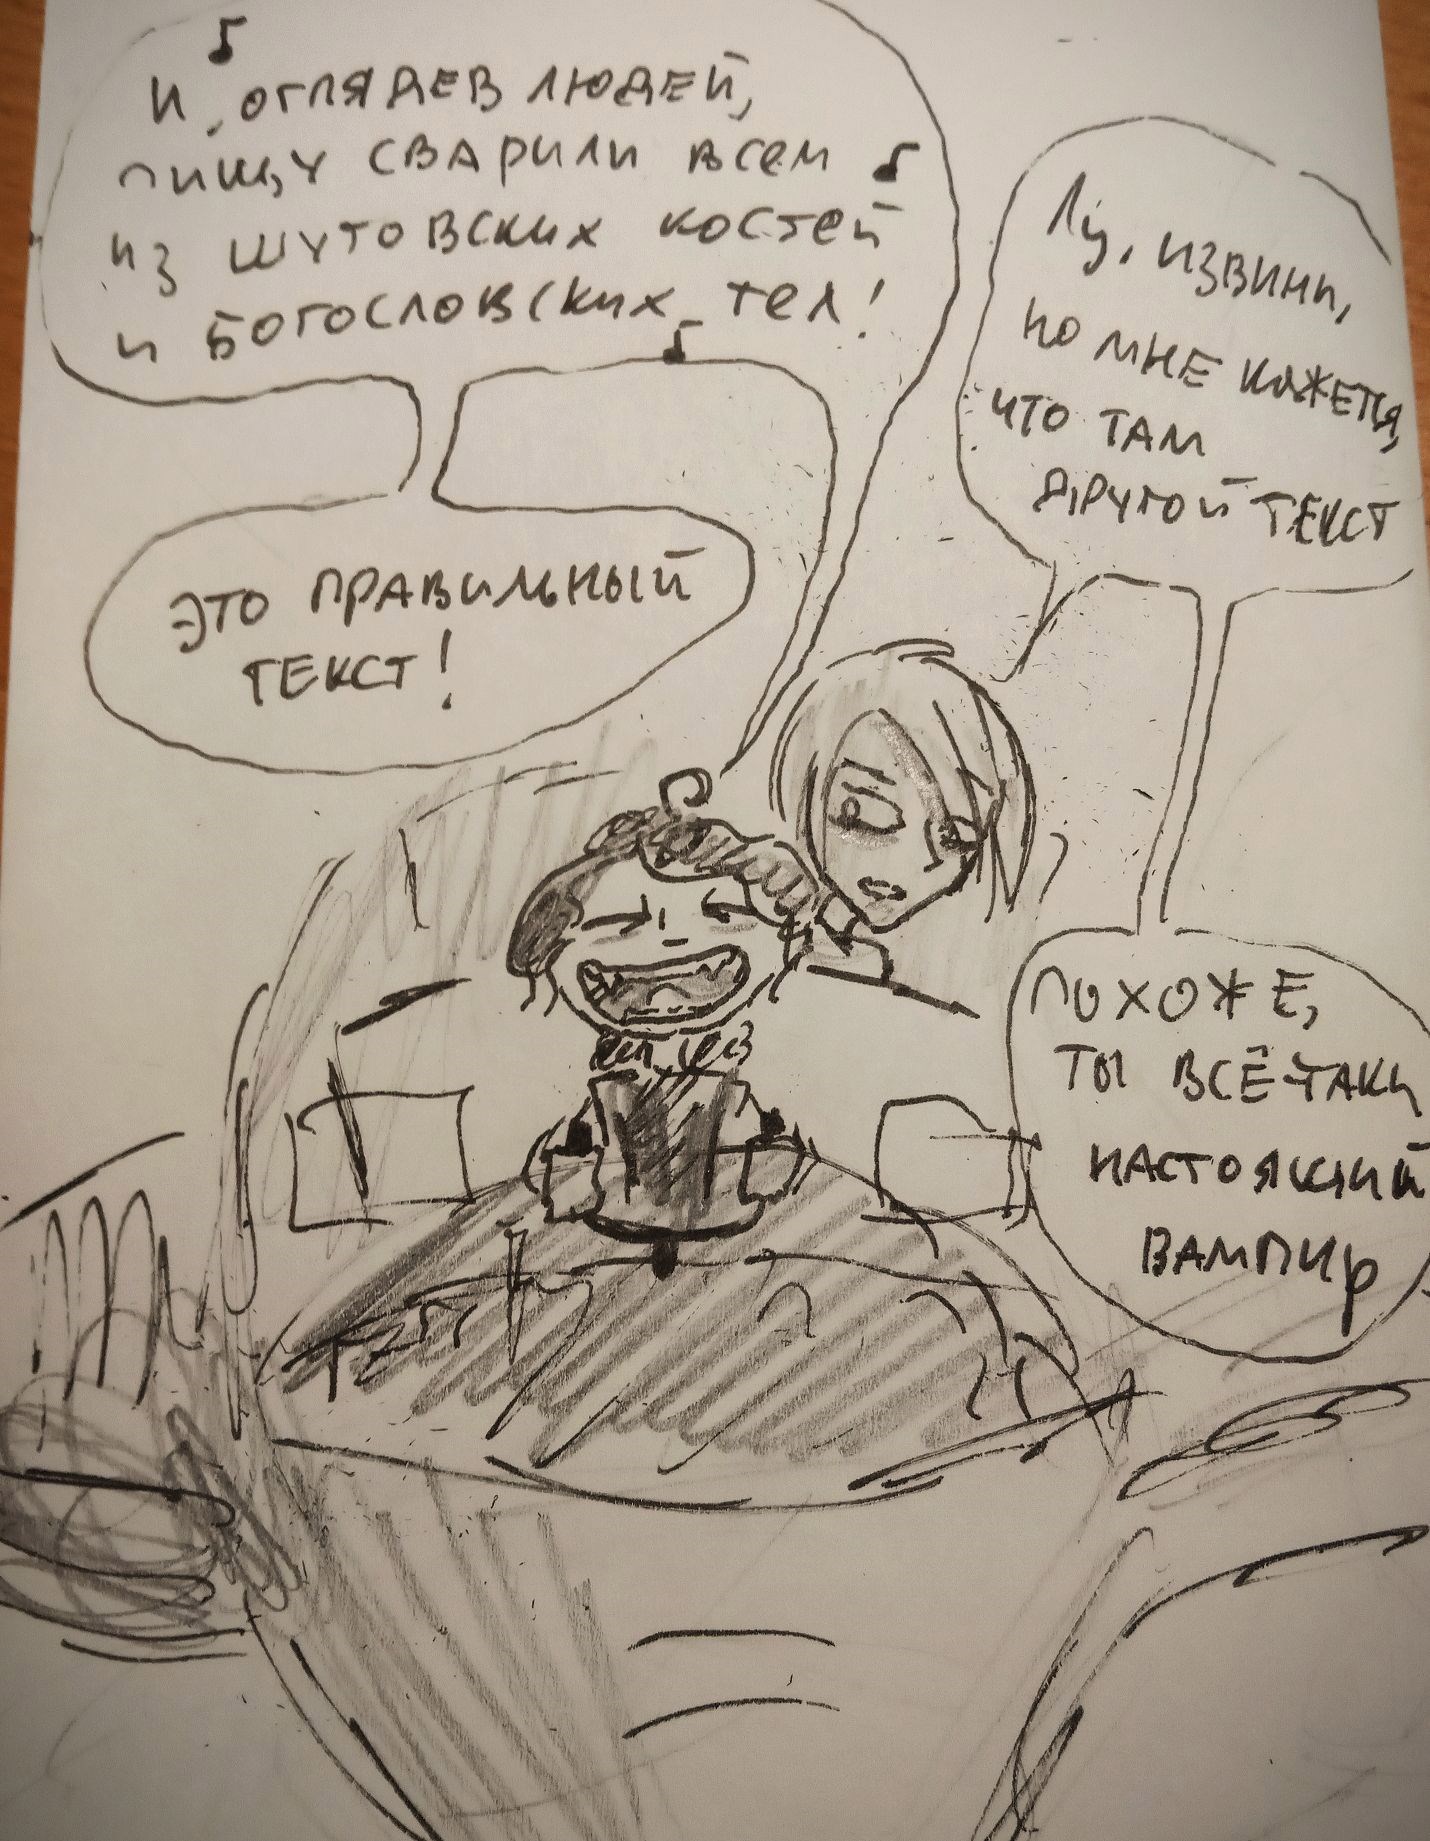 И, оглядев людей,
пищу сварили всем
из шутовских костей
и богословских тел!
Лу, извини,
но мне кажется,
что там
другой текст
Это правильный
текст!
Похоже,
ты всё-таки
настоящий
вампир